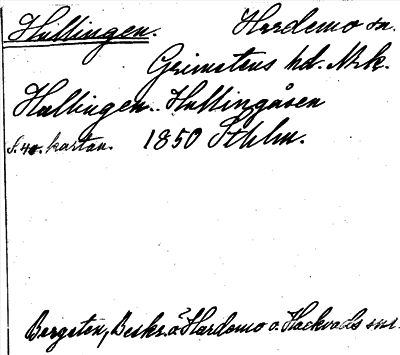 Hullingen. Hardemo sn.
Grimstens hd. Nrk.
Hullingen.. Hullingåsen
S. 40. kartan. 1850 Sthlm.
Bergsten, Beskr. ö. Hardemo o. Hackvads snr.